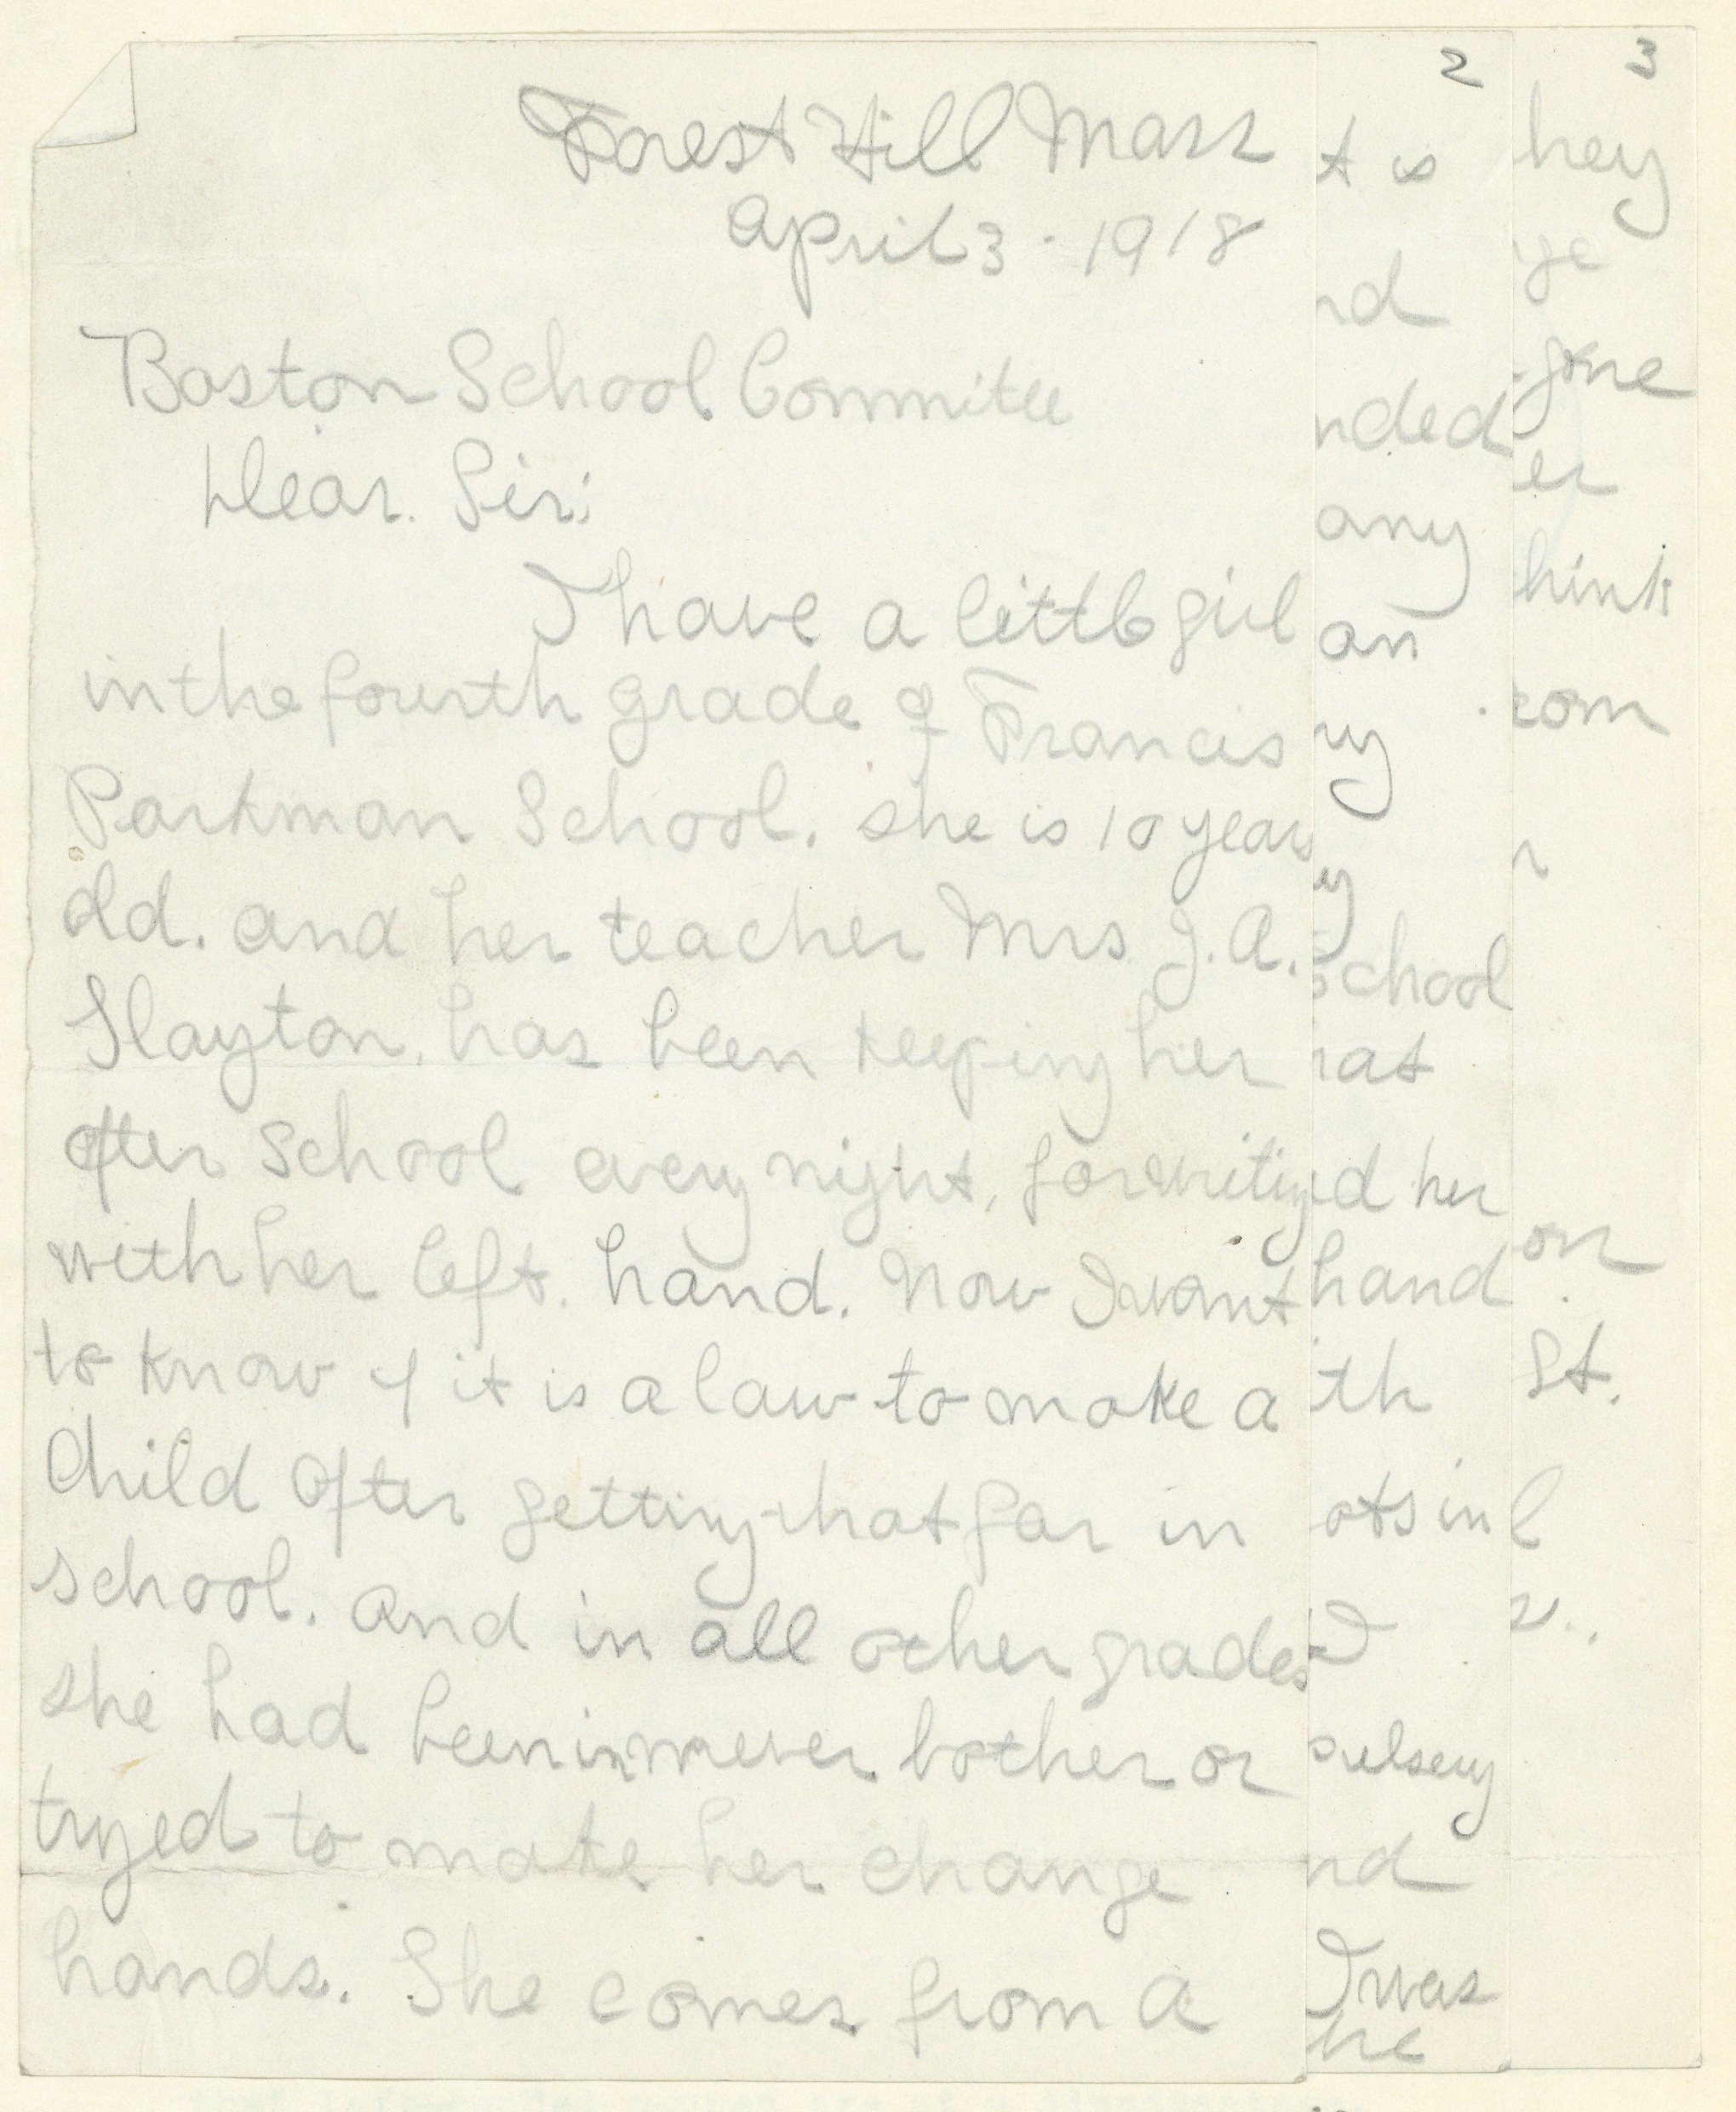 Forest Hill Mass
April 3 - 1918
Boston School Commitee
Dear. Sir:
I have a little girl
in the fourth grade of Francis
Parkman School. she is 10 years
old. and her teacher Mrs J. A.
Slayton, has been keeping her
after school every night, for writing
with her left. hand. Now I want
to know if it is a law to make a
Child after getting that far in
school. and in all other grades
she had been in never bother or
tryed to make her change
hands. She comes from a
2
t is
nd
nded
any
an
ry
y
School
hat
d her
hand
ith
ots in
I
pulsery
nd
I was
he
3
hey
ge
gone
er
hink
rom
r
on
St.
l
s..